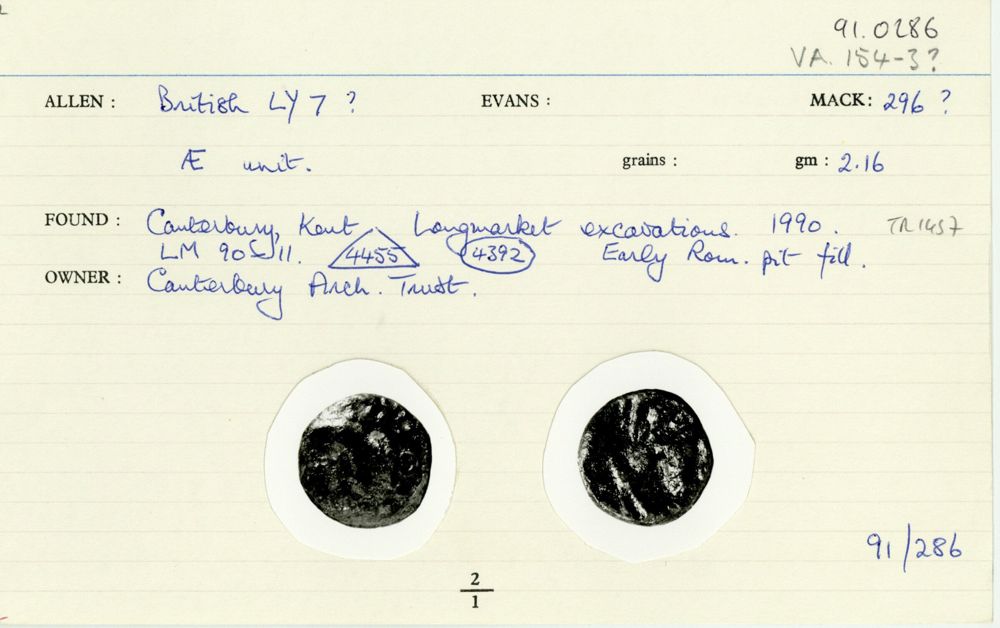 91.0286
VA. 154-3?
ALLEN : British LY 7 ? EVANS : MACK: 296 ?
Æ unit. grains : gm : 2.16
FOUND : Canterbury, Kent Longmarket excavations. 1990. TR1457
LM 90 11. 4455 4392 Early Rom. pit fill.
OWNER : Canterbury Arch. Trust.
91/286
2
1